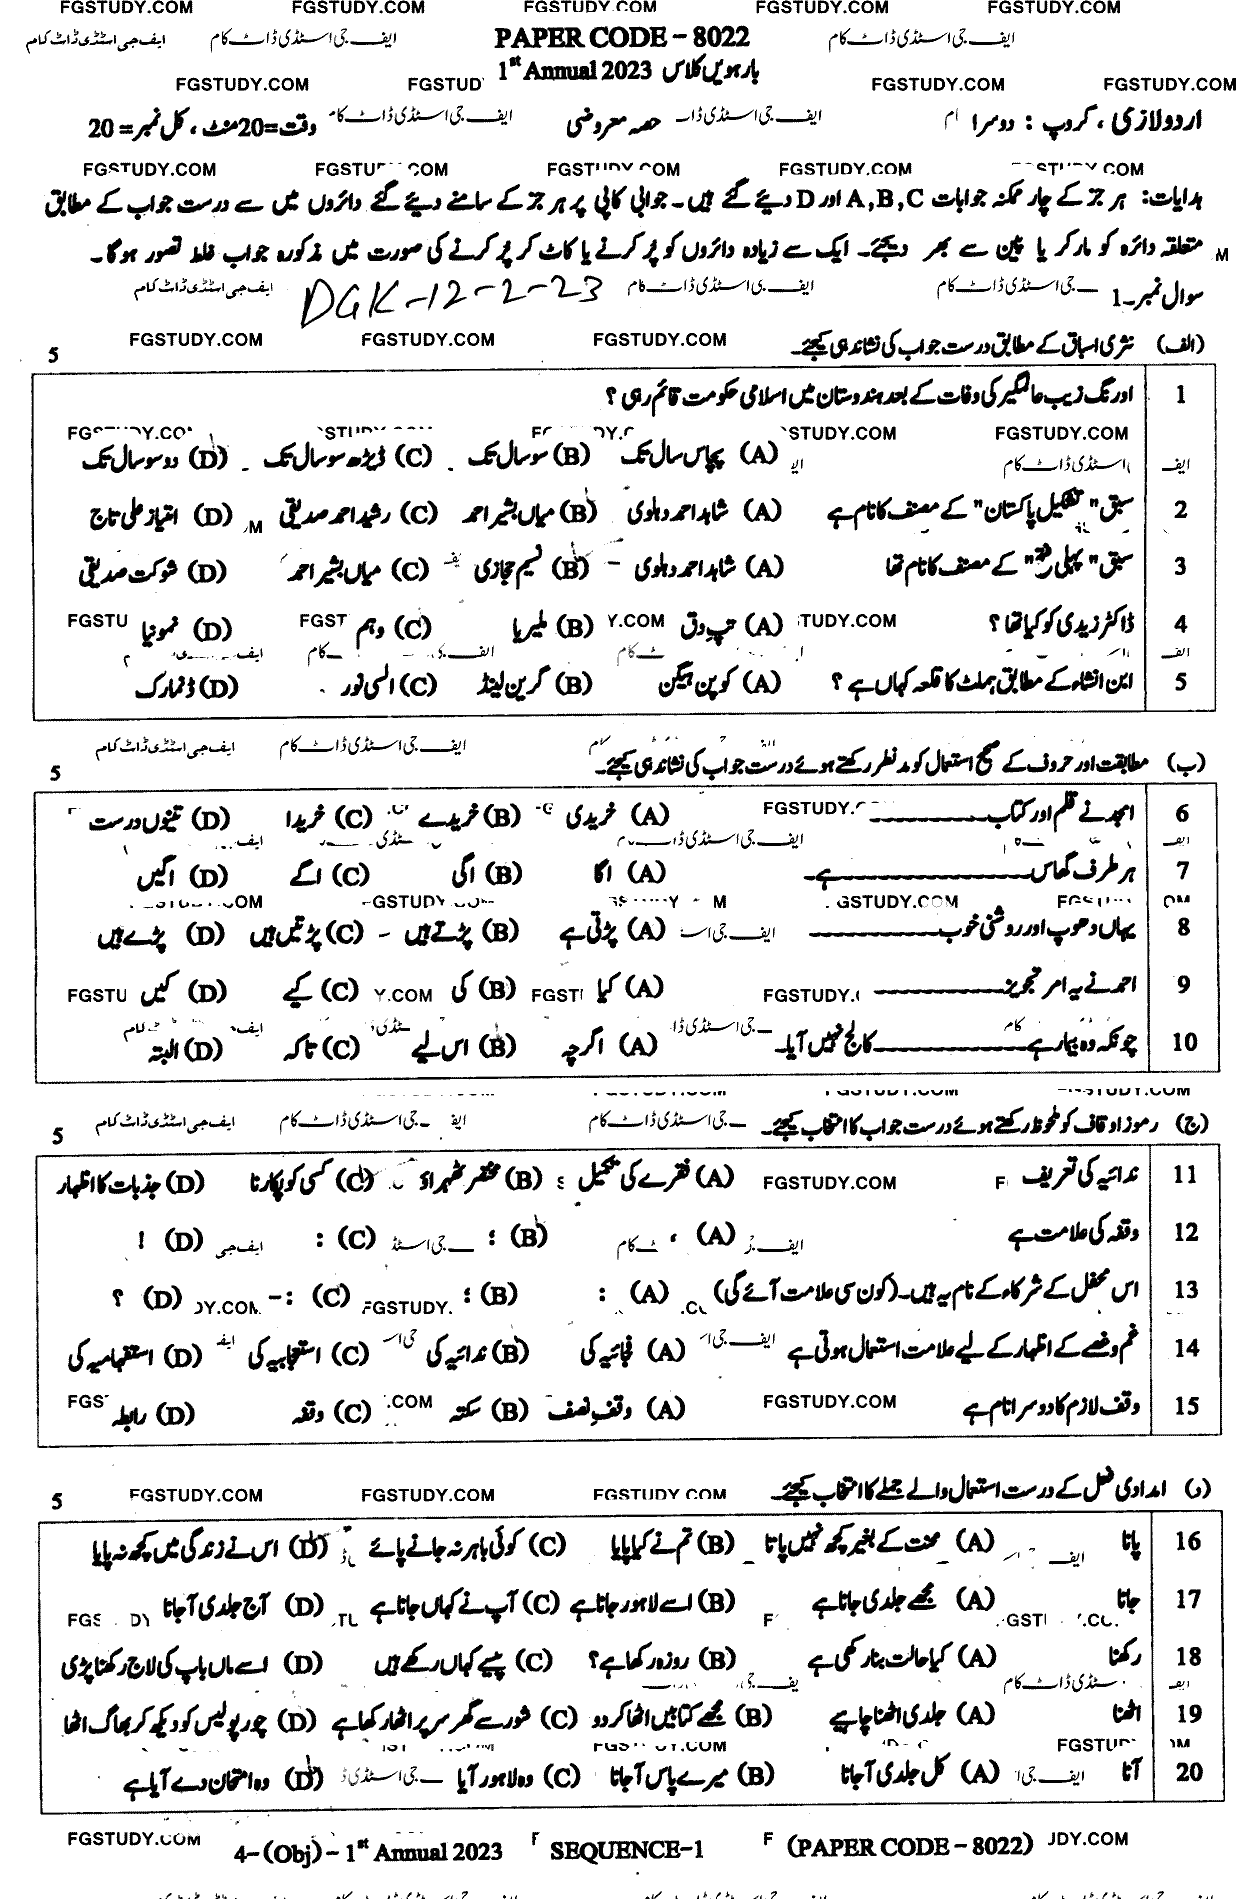 FGSTUDY.COM FGSTUDY.COM FGSTUDY.COM FGSTUDY.COM FGSTUDY.COM
ایف جی اسٹڈی ڈاٹ کام ایف جی اسٹڈی ڈاٹ کام PAPER CODE – 8022 ایف جی اسٹڈی ڈاٹ کام
1st Annual 2023 بارہویں کلاس
FGSTUDY.COM FGSTUD FGSTUDY.COM FGSTUDY.COM
اردو لازمی ، گروپ : دوسرا حصہ معروضی وقت=20منٹ ، کل نمبر= 20
FGSTUDY.COM FGSTUDY.COM FGSTUDY.COM FGSTUDY.COM
ہدایات: ہر جز کے چار ممکنہ جوابات A,B,C اور D دیئے گئے ہیں۔ جوابی کاپی پر ہر جز کے سامنے دیئے گئے دائروں میں سے درست جواب کے مطابق
متعلقہ دائرہ کو مارکر یا پین سے بھر دیجئے۔ ایک سے زیادہ دائروں کو پُر کرنے یا کاٹ کر پُر کرنے کی صورت میں مذکورہ جواب غلط تصور ہوگا۔
سوال نمبر۔1 DGK-12-2-23
(الف) نثری اسباق کے مطابق درست جواب کی نشاندہی کیجئے۔ 5
FGSTUDY.COM FGSTUDY.COM FGSTUDY.COM
1 اورنگ زیب عالمگیر کی وفات کے بعد ہندوستان میں اسلامی حکومت قائم رہی ؟
(A) پچاس سال تک (B) سو سال تک (C) ڈیڑھ سو سال تک (D) دو سو سال تک
2 سبق "تشکیل پاکستان" کے مصنف کا نام ہے (A) شاہد احمد دہلوی (B) میاں بشیر احمد (C) رشید احمد صدیقی (D) امتیاز علی تاج
3 سبق "پہلی فتح" کے مصنف کا نام تھا (A) شاہد احمد دہلوی (B) نسیم حجازی (C) میاں بشیر احمد (D) شوکت صدیقی
4 ڈاکٹر زیدی کو کیا تھا ؟ (A) تپ دق (B) ملیریا (C) وہم (D) نمونیا
5 ابن انشاء کے مطابق ہملٹ کا قلعہ کہاں ہے ؟ (A) کوپن ہیگن (B) گرین لینڈ (C) السی نور (D) ڈنمارک
(ب) مطابقت اور حروف کے صحیح استعمال کو مدنظر رکھتے ہوئے درست جواب کی نشاندہی کیجئے۔ 5
6 امجد نے قلم اور کتاب ________ (A) خریدی (B) خریدے (C) خریدا (D) تینوں درست
7 ہر طرف گھاس ________ ہے۔ (A) اگا (B) اگی (C) اگے (D) اگیں
8 یہاں دھوپ اور روشنی خوب ________ (A) پڑتی ہے (B) پڑتے ہیں (C) پڑتیں ہیں (D) پڑے ہیں
9 احمد نے یہ امر تجویز ________ (A) کیا (B) کی (C) کیے (D) کیں
10 چونکہ وہ بیمار ہے ________ کالج نہیں آیا۔ (A) اگرچہ (B) اس لیے (C) تاکہ (D) البتہ
(ج) رموز اوقاف کو ملحوظ رکھتے ہوئے درست جواب کا انتخاب کیجئے۔ 5
11 ندائیہ کی تعریف (A) فقرے کی تکمیل (B) مختصر ٹھہراؤ (C) کسی کو پکارنا (D) جذبات کا اظہار
12 وقفہ کی علامت ہے (A) ، (B) ؛ (C) : (D) !
13 اس محفل کے شرکاء کے نام یہ ہیں۔(کون سی علامت آئے گی) (A) : (B) ؛ (C) :- (D) ؟
14 غم و غصے کے اظہار کے لیے علامت استعمال ہوتی ہے (A) فجائیہ کی (B) ندائیہ کی (C) استعجابیہ کی (D) استفہامیہ کی
15 وقف لازم کا دوسرا نام ہے (A) وقف نصف (B) سکتہ (C) وقفہ (D) رابطہ
(د) امدادی فعل کے درست استعمال والے جملے کا انتخاب کیجئے۔ 5
FGSTUDY.COM FGSTUDY.COM FGSTUDY.COM
16 پانا (A) محنت کے بغیر کچھ نہیں پاتا (B) تم نے کیا پایا (C) کوئی باہر نہ جانے پائے (D) اس نے زندگی میں کچھ نہ پایا
17 جانا (A) مجھے جلدی جانا ہے (B) اسے لاہور جانا ہے (C) آپ نے کہاں جانا ہے (D) آج جلدی آ جانا
18 رکھنا (A) کیا حالت بنا رکھی ہے (B) روزہ رکھا ہے؟ (C) پیسے کہاں رکھے ہیں (D) اسے ماں باپ کی لاج رکھنا پڑی
19 اٹھنا (A) جلدی اٹھنا چاہیے (B) مجھے کتابیں اٹھا کر دو (C) شور سے گھر سر پر اٹھا رکھا ہے (D) چور پولیس کو دیکھ کر بھاگ اٹھا
20 آنا (A) کل جلدی آ جانا (B) میرے پاس آ جانا (C) وہ لاہور آیا (D) وہ امتحان دے آیا ہے
4-(Obj) – 1st Annual 2023 SEQUENCE-1 (PAPER CODE – 8022)